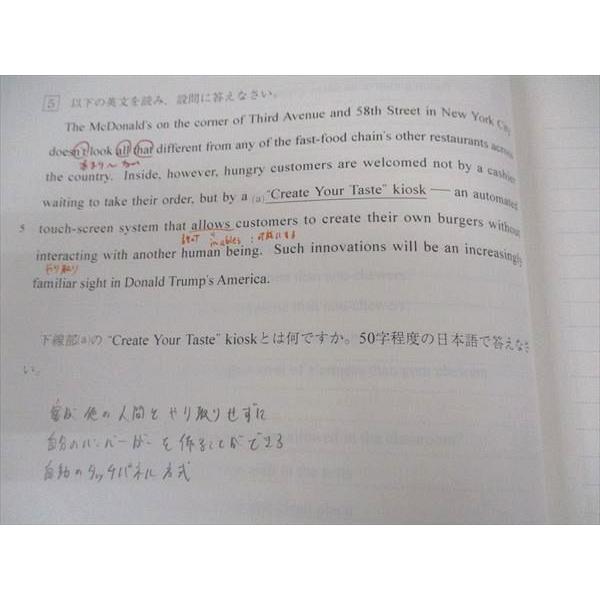 5 以下の英文を読み、設問に答えなさい。
The McDonald's on the corner of Third Avenue and 58th Street in New York City
doesn't look all that different from any of the fast-food chain's other restaurants across
あまり〜ない
the country. Inside, however, hungry customers are welcomed not by a cashier
waiting to take their order, but by a (a)"Create Your Taste" kiosk — an automated
5 touch-screen system that allows customers to create their own burgers without
可能にする
interacting with another human being. Such innovations will be an increasingly
やり取り
familiar sight in Donald Trump's America.
下線部(a)の "Create Your Taste" kioskとは何ですか。50字程度の日本語で答えなさ
い。
客が他の人間とやり取りせずに
自分のハンバーガーを作ることができる
自動のタッチパネル方式